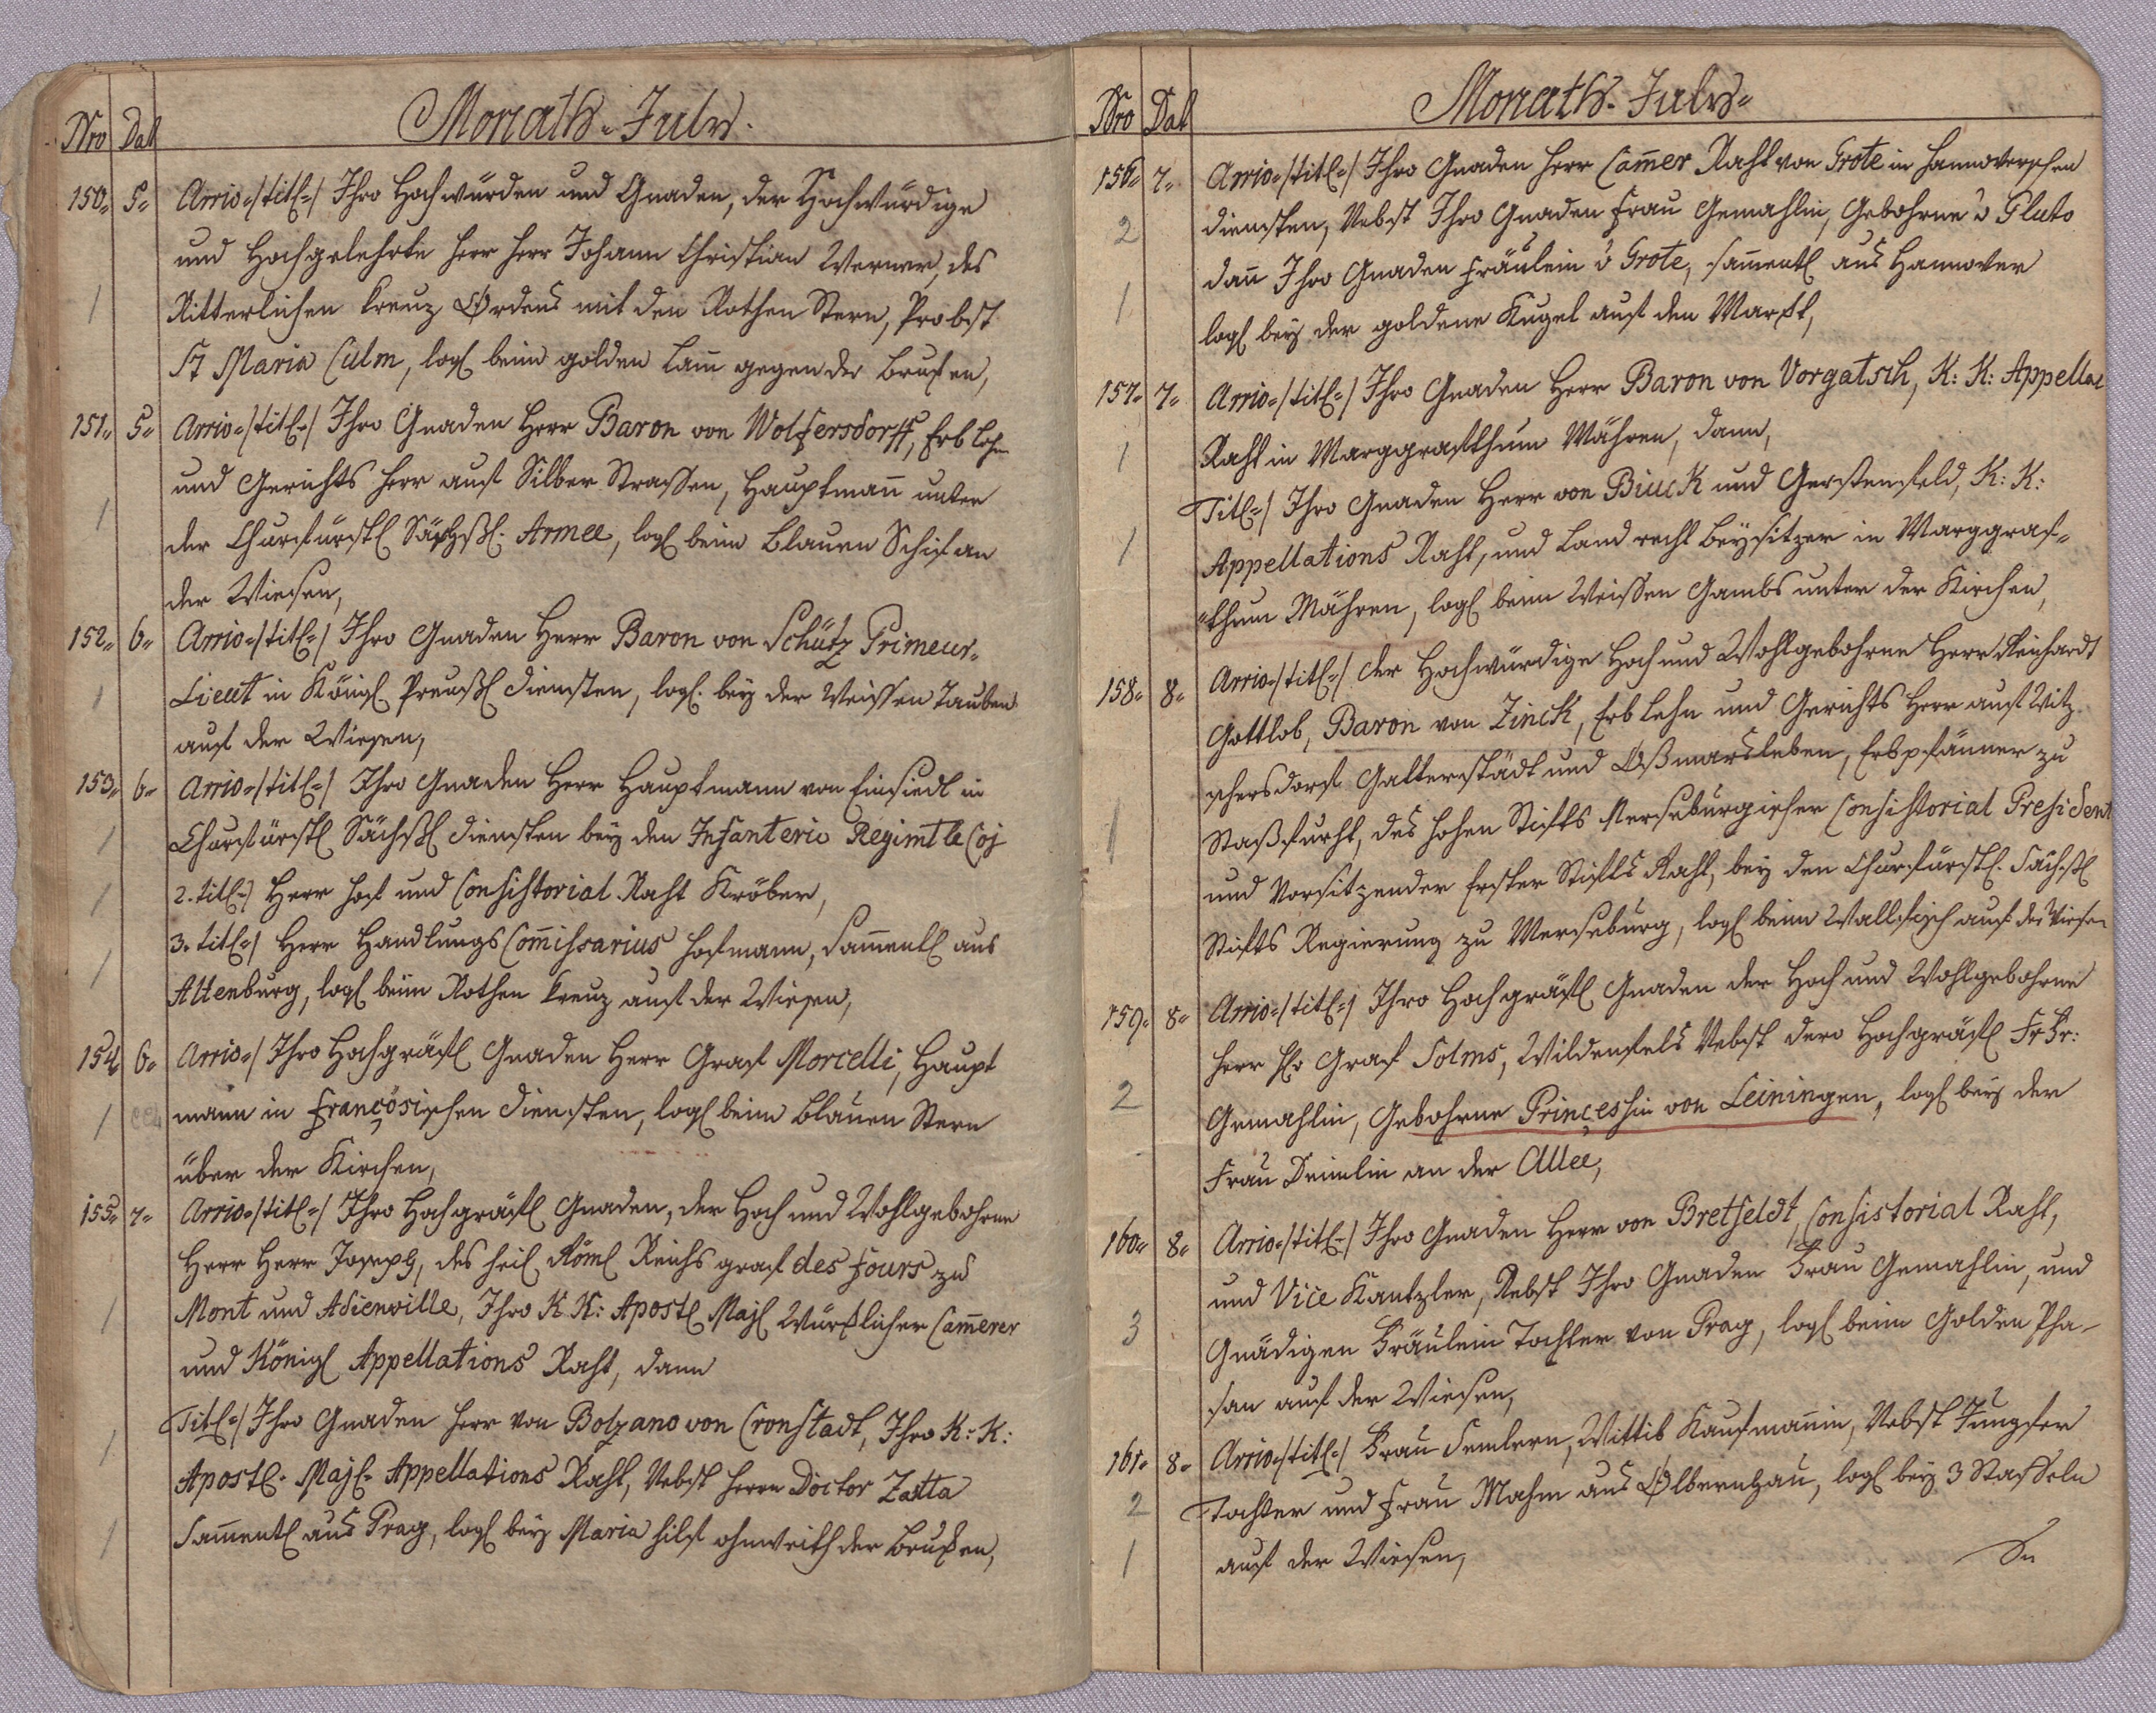 Nro Dat Monath Julÿ.
150. 5. Arrio./titl./ Ihro Hochwürden und Gnaden, der Hochwürdige
und Hochgelehrte Herr Herr Johann Christian Werner, des
1 Ritterlichen Creuz Ordens mit den Rothen Stern, Probst
St Maria Culm, logl beim golden Lam̄ gegen der Brucken,
151. 5. Arrio./titl./ Ihro Gnaden Herr Baron von Wolfersdorff, Erb Lehn
und Gerichts Herr auf Silber Strassen, Hauptman̄ unter
1 der Churfürstl Sächßl. Armee, logl beim Blauen Schif an
der Wiesen,
152. 6. Arrio./titl./ Ihro Gnaden Herr Baron von Schütz Primeur-
1 Lieut in Königl Preußl Diensten, logl. bey der Weissen Tauben
auf der Wiesen,
153. 6. Arrio./titl./ Ihro Gnaden Herr Hauptmann von Einsiedl in
1 Churfürstl Sächßl Diensten bey den Infanterie Regimt le Coj
1 2. titl./ Herr Hof und Consistorial Raht Kröber,
3. titl./ Herr Handlungs Com̄issarius Hofmann, Sam̄entl aus
1 Altenburg, logl beim Rothen Creuz auf der Wiesen,
154. 6. Arrio./ Ihro Hochgräfl Gnaden Herr Graf Morcelli, Haupt
1 mann in Françösischen Diensten, logl beim Blauen Stern
über der Kirchen,
155. 7. Arrio./titl./ Ihro Hochgräfl Gnaden, der Hoch und Wohlgebohrne
Herr Herr Joseph, des heil Röml Reichs graf des Fours zu
1 Mont und Adienville, Ihro K. K: Apostl Majl Würklicher Cam̄erer
und Königl Appellations Raht, dann
1 Titl./ Ihro Gnaden Herr von Bolzano von Cronstadt, Ihro K: K:
Apostl. Majl. Appellations Raht, Nebst Herrn Doctor Zatta
1 Sam̄entl aus Prag, logl bey Maria hilf ohnweith der Brucken,
Nro Dat Monath Julÿ
156. 7. Arrio./titl./ Ihro Gnaden Herr Cam̄er Raht von Grote in Hannoverschen
2 Diensten, Nebst Ihro Gnaden Frau Gemahlin, Gebohrne v Pluto
dan̄ Ihro Gnaden Fräulein v Grote, sam̄entl aus Hannover
1 logl bey der goldene Kugel auf den Markt,
157. 7. Arrio./titl./ Ihro Gnaden Herr Baron von Vorgatsch, K: K: Appellat
1 Raht in Marggrafthum Mähren, dann,
Titl./ Ihro Gnaden Herr von Biuck und Gerstenfeld, K: K:
1 Appellations Raht, und Land recht Beysitzer in Marggraf-
thum Mähren, logl beim Weissen Gambs unter der Kirchen,
158. 8. Arrio./titl./ der Hochwürdige Hoch und Wohlgebohrne Herr Reinhardt
Gottlob, Baron von Zinck, Erb Lehn und Gerichts Herr auf Witz
schersdorf Gatterstädt und Oßmarsleben, Erbpfänner zu
1 Staßfurht, des hohen Stifts Merseburgischer Consistorial President
und Vorsitzender Erster Stifts Raht, bey den Churfürstl. Sächßl
Stifts Regierung zu Merseburg, logl beim Wallfisch auf der Wiesen
159. 8. Arrio./titl./ Ihro Hochgräfl Gnaden der Hoch und Wohlgebohrne
Herr Hr Graf Solms, Wildenfels Nebst dero Hochgräfl Fr Fr:
2 Gemahlin, Gebohrne Princessin von Leiningen, logl bey der
Frau Deimlin an der Allee,
160. 8. Arrio./titl./ Ihro Gnaden Herr von Bretfeldt, Consistorial Raht,
und Vice Kantzler, Nebst Ihro Gnaden Frau Gemahlin, und
3 Gnädigen Fräulein Tochter von Prag, logl beim Golden Pha-
san auf der Wiesen,
161. 8. Arrio./titl./ Frau Semlern, Wittib Kaufman̄in, Nebst Jungfer
2 Tochter und Frau Mahm aus Olbernhau, logl bey 3 Staffeln
1 auf der Wiesen,